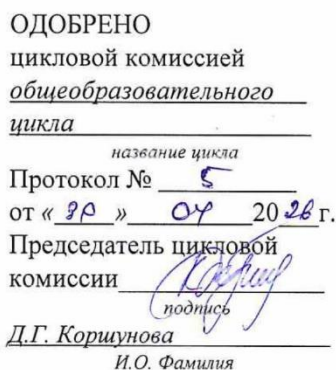 ОДОБРЕНО
цикловой комиссией
общеобразовательного
цикла
название цикла
Протокол № 5
от « 30 » 04 20 26 г.
Председатель цикловой
комиссии
подпись
Д.Г. Коршунова
И.О. Фамилия